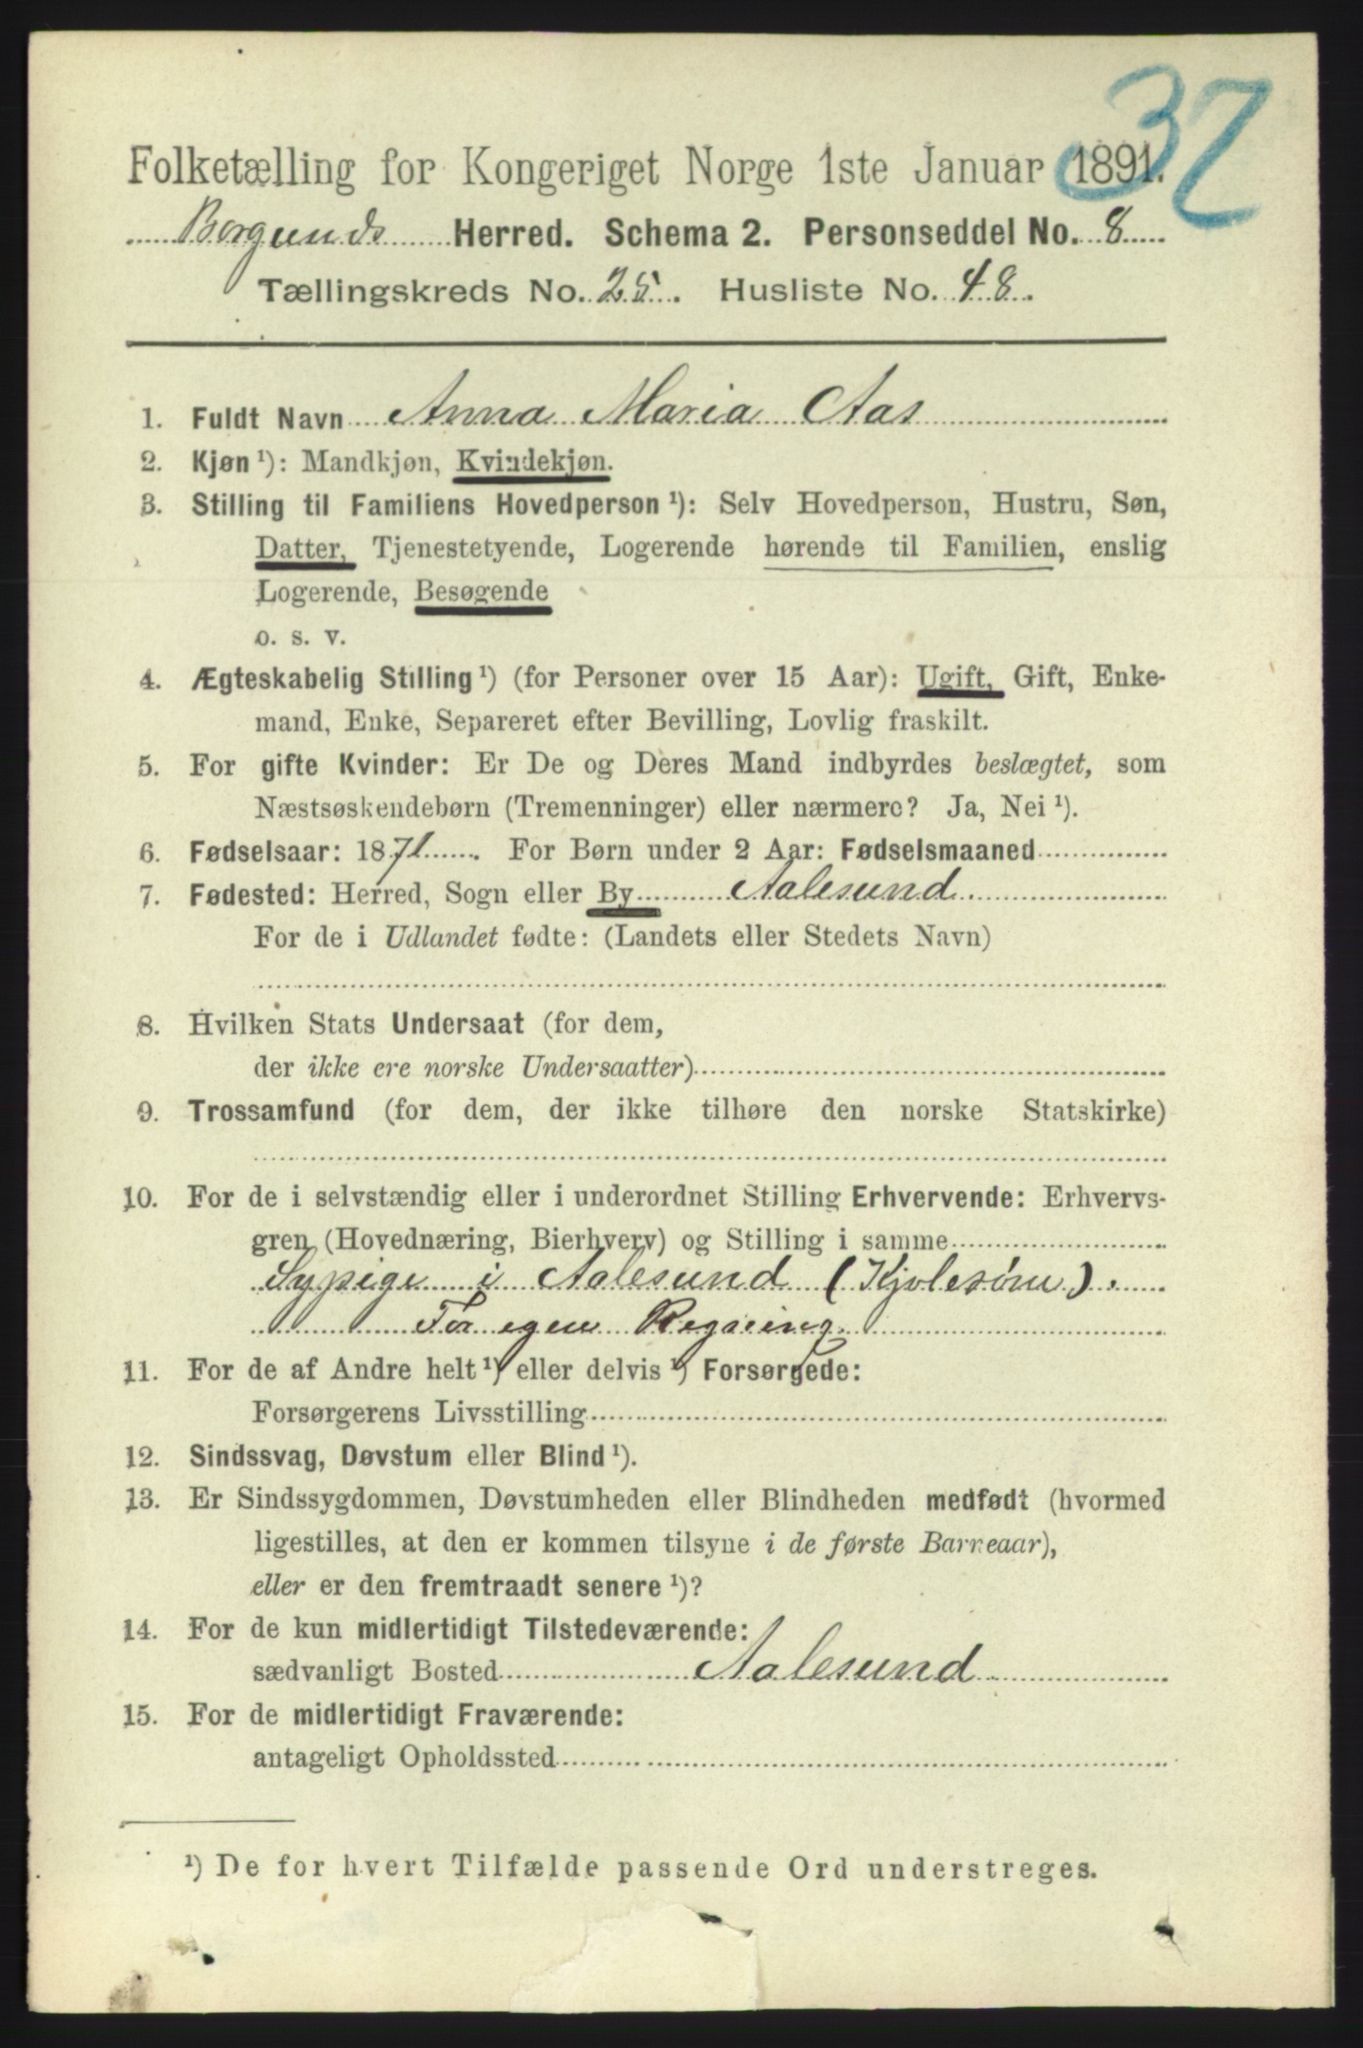 32
Folketælling for Kongeriget Norge 1ste Januar 1891.
Borgunds Herred. Schema 2. Personseddel No. 8
Tællingskreds No. 25. Husliste No. 48.
1. Fuldt Navn Anna Maria Aas
2. Kjøn ¹): Mandkjøn, Kvindekjøn.
3. Stilling til Familiens Hovedperson ¹): Selv Hovedperson, Hustru, Søn,
Datter, Tjenestetyende, Logerende hørende til Familien, enslig
Logerende, Besøgende
o. s. v.
4. Ægteskabelig Stilling ¹) (for Personer over 15 Aar): Ugift, Gift, Enke-
mand, Enke, Separeret efter Bevilling, Lovlig fraskilt.
5. For gifte Kvinder: Er De og Deres Mand indbyrdes beslægtet, som
Næstsøskendebørn (Tremenninger) eller nærmere? Ja, Nei ¹).
6. Fødselsaar: 1871. For Børn under 2 Aar: Fødselsmaaned
7. Fødested: Herred, Sogn eller By Aalesund
For de i Udlandet fødte: (Landets eller Stedets Navn)
8. Hvilken Stats Undersaat (for dem,
der ikke ere norske Undersaatter)
9. Trossamfund (for dem, der ikke tilhøre den norske Statskirke)
10. For de i selvstændig eller i underordnet Stilling Erhvervende: Erhvervs-
gren (Hovednæring, Bierhverv) og Stilling i samme
Sypige i Aalesund (Kjolesøm).
For egen Regning.
11. For de af Andre helt ¹) eller delvis ¹) Forsørgede:
Forsørgerens Livsstilling
12. Sindssvag, Døvstum eller Blind ¹).
13. Er Sindssygdommen, Døvstumheden eller Blindheden medfødt (hvormed
ligestilles, at den er kommen tilsyne i de første Barneaar),
eller er den fremtraadt senere ¹)?
14. For de kun midlertidigt Tilstedeværende:
sædvanligt Bosted Aalesund
15. For de midlertidigt Fraværende:
antageligt Opholdssted
¹) De for hvert Tilfælde passende Ord understreges.